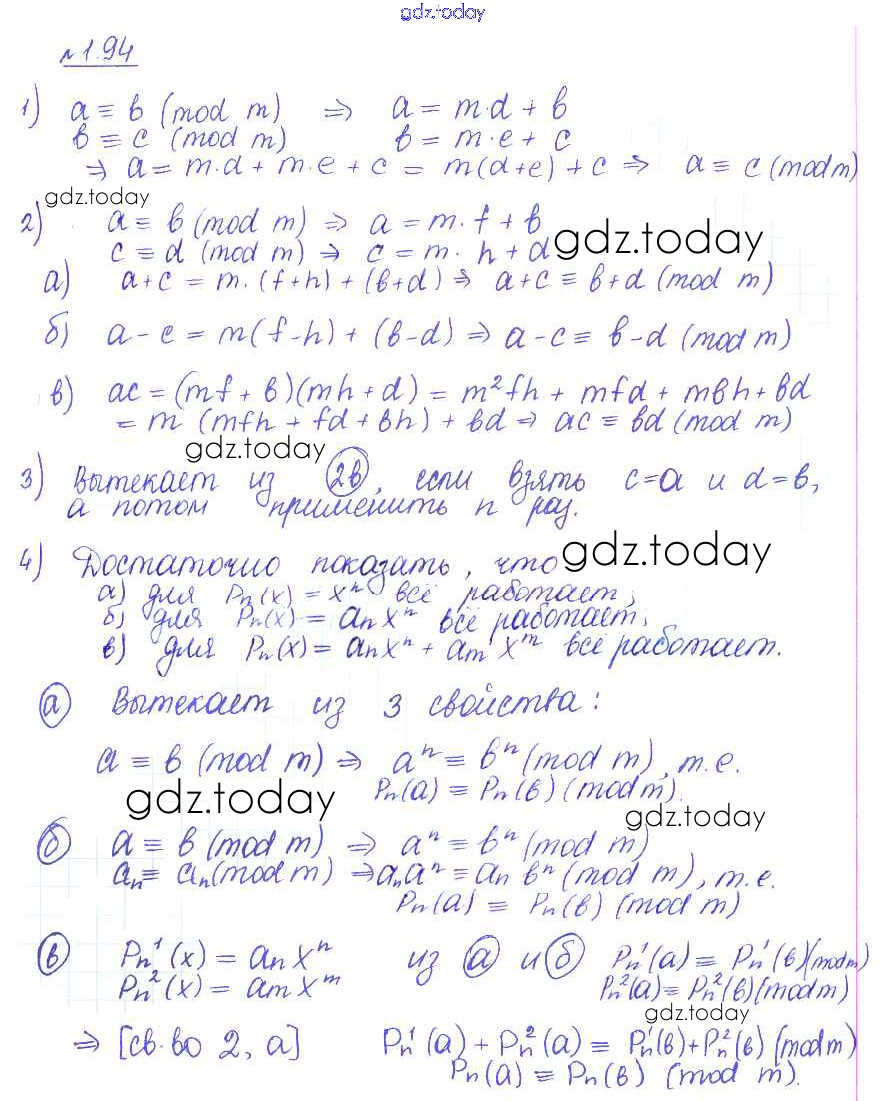 gdz.today
№1.94
1) a ≡ b (mod m) ⇒ a = m·d + b
b ≡ c (mod m) b = m·e + c
⇒ a = m·d + m·e + c = m(d+e) + c ⇒ a ≡ c (mod m)
gdz.today
2) a ≡ b (mod m) ⇒ a = m·f + b
c ≡ d (mod m) ⇒ c = m·h + d gdz.today
а) a+c = m·(f+h) + (b+d) ⇒ a+c ≡ b+d (mod m)
б) a-c = m(f-h) + (b-d) ⇒ a-c ≡ b-d (mod m)
в) ac = (mf + b)(mh + d) = m²fh + mfd + mbh + bd
= m (mfh + fd + bh) + bd ⇒ ac ≡ bd (mod m)
gdz.today
3) Вытекает из 2в, если взять c=a и d=b,
а потом применить n раз.
4) Достаточно показать, что gdz.today
а) для Pₙ(x) = xⁿ всё работает;
б) для Pₙ(x) = aₙxⁿ всё работает;
в) для Pₙ(x) = aₙxⁿ + aₘxᵐ всё работает.
а Вытекает из 3 свойства:
a ≡ b (mod m) ⇒ aⁿ ≡ bⁿ (mod m), т.е.
Pₙ(a) ≡ Pₙ(b) (mod m).
gdz.today
gdz.today
б a ≡ b (mod m) ⇒ aⁿ ≡ bⁿ (mod m)
aₙ ≡ aₙ (mod m) ⇒ aₙaⁿ ≡ aₙbⁿ (mod m), т.е.
Pₙ(a) ≡ Pₙ(b) (mod m)
в Pₙ¹(x) = aₙxⁿ из а и б Pₙ¹(a) ≡ Pₙ¹(b)(mod m)
Pₙ²(x) = aₘxᵐ Pₙ²(a) ≡ Pₙ²(b)(mod m)
gdz.today
⇒ [св-во 2, а] Pₙ¹(a) + Pₙ²(a) ≡ Pₙ¹(b) + Pₙ²(b) (mod m)
Pₙ(a) ≡ Pₙ(b) (mod m).